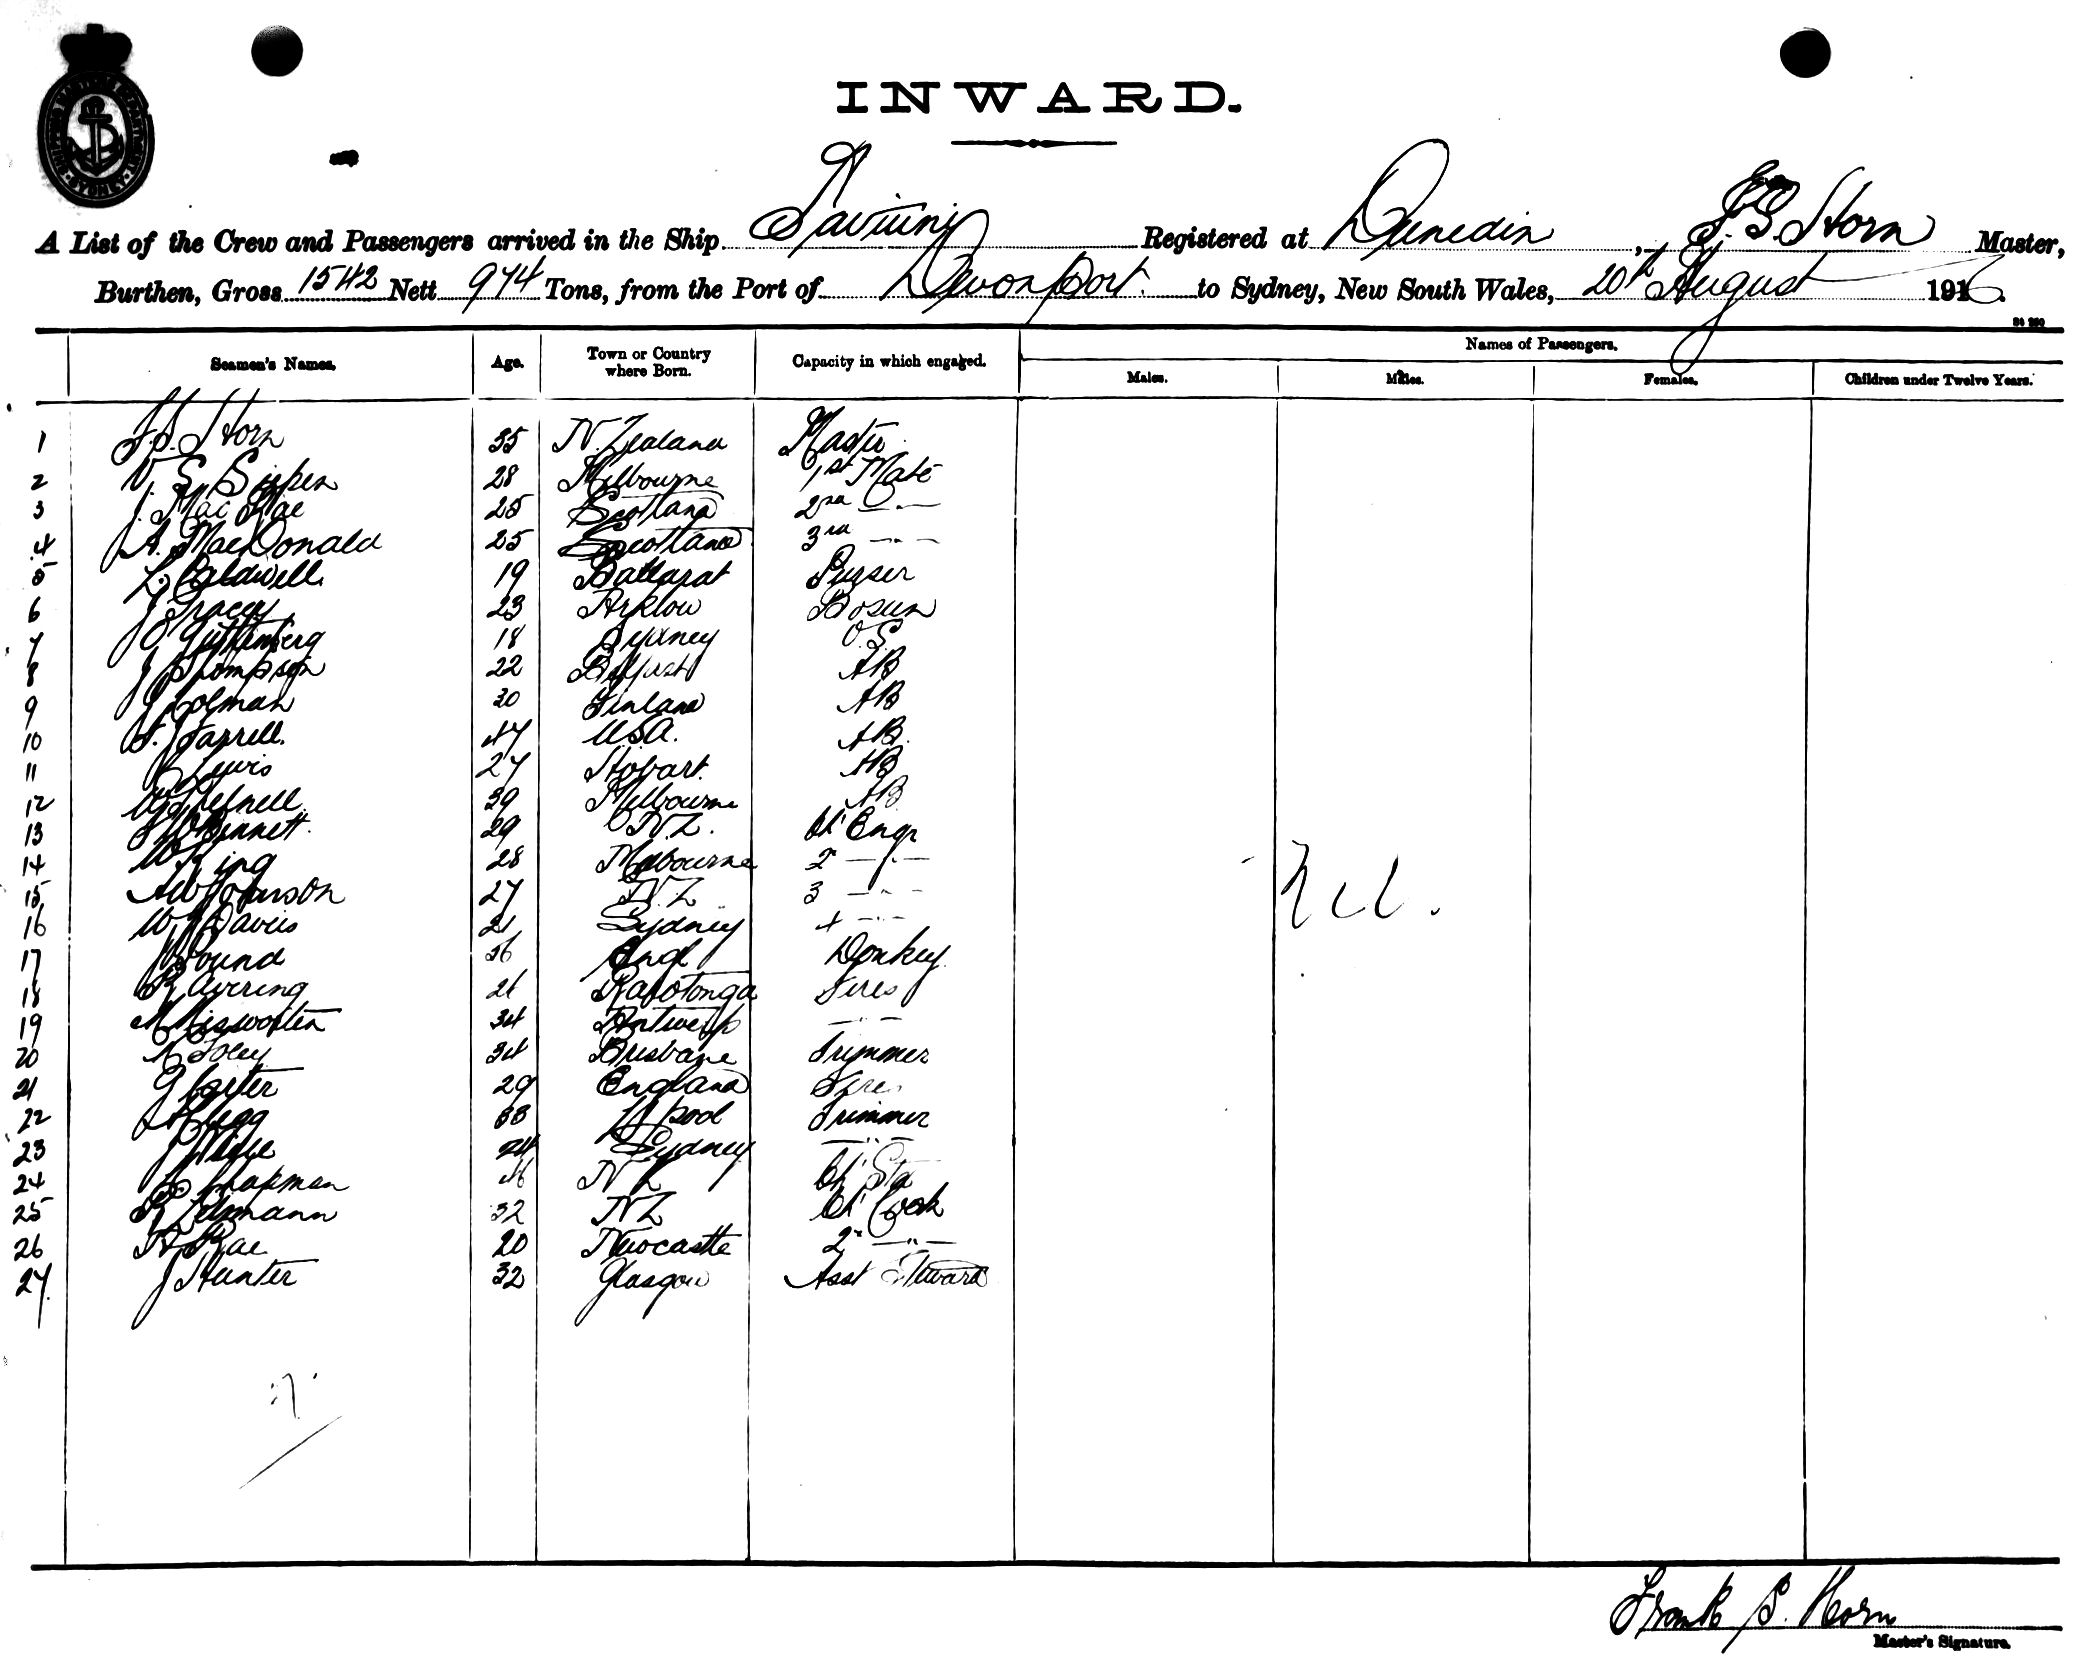 INWARD.
A List of the Crew and Passengers arrived in the Ship Taviuni Registered at Dunedin, F. S. Horn Master,
Burthen, Gross 1542 Nett 974 Tons, from the Port of Devonport. to Sydney, New South Wales, 20th August 1916.
Names of Passengers.
Seamen's Names. Age. Town or Country where Born. Capacity in which engaged. Males. Males. Females. Children under Twelve Years.
1 F. S. Horn 35 N. Zealand Master
2 28 Melbourne 1st Mate
3 J. Mac Rae 25 Scotland 2nd —"—
4 A. MacDonald 25 Scotland 3rd —"—
5 L. Caldwell 19 Ballarat Purser
6 J Tracey 23 Arklow Bosun
7 18 Sydney O.S.
8 J Thompson 22 Belfast AB
9 J Holman 30 Finland AB
10 Farrell. 47 USA. AB.
11 Lewis 27 Hobart. AB
12 39 Melbourne AB
13 Bennett. 29 N.Z. Ch' Engr
14 W King 28 Melbourne 2" —"—
15 AW Johnson 27 N.Z 3 —"—
16 W Davies 21 Sydney 4 —"—
17 Pound 36 Engl Donkey
18 21 Rarotonga Fires
19 34 Antwerp —"—
20 Foley 34 Brisbane Trimmer
21 29 England Fires
22 33 L'pool Trimmer
23 24 Sydney —"—
24 Chapman N Z Ch' Std
25 32 NZ Ch' Cook
26 Rae 20 Newcastle 2" —"—
27. J Hunter 32 Glasgow Asst Steward
Nil.
Frank S. Horn
Master's Signature.